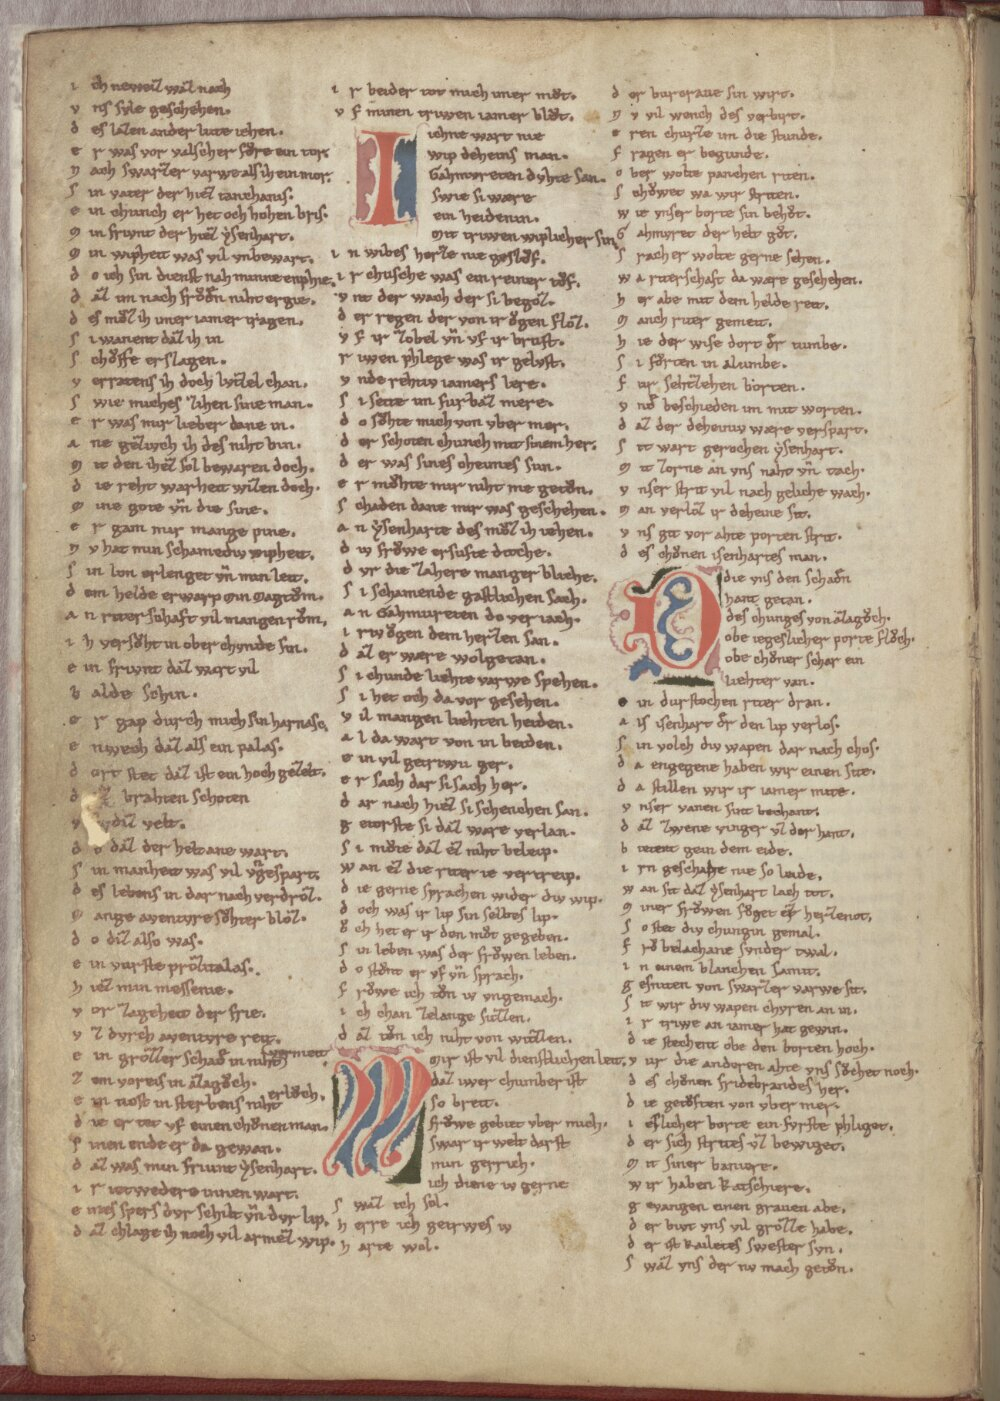 i ch neweiz waz nach
v ns syle geschehen.
d es lazen ander lute iehen.
e r was vor valscher fŏre ein tors
n ach swarzer varwe als ih ein mor.
s in vater der hiez tanchanis.
e in chunch er het och hohen bris.
m in friunt der hiez ysenhart.
m in wipheit was vil vnbewart.
d o ich sin dienst nah minne enphie.
d az im nach frŏdn niht ergie.
d es mŏz ih imer iamer tragen.
s i wanent daz ih in
s chŏffe erslagen.
v erratens ih doch lvtzel chan.
s wie miches zihen sine man.
e r was mir lieber dane in.
a ne gezivch ih des niht bin.
m it den ihez sol bewaren doch.
d ie reht warheit wizen doch.
m ine gote vn̄ die sine.
e r gam mir mange pine.
n v hat min schamediv wipheit.
s in lon erlenget vn̄ min leit.
d em helde erwarp min magtŏm.
a n riterschaft vil mangen rŏm.
i h versŏht in ober chvnde sin.
e in friwnt daz wart vil
b alde schin.
e r gap durch mich sin harnasc.
e nwech daz als ein palas.
d ort stet daz ist ein hoch gezelt.
d brahten schoten
v f diz velt.
d o daz der helt ane wart.
s in manheit was vil vngespart.
d es lebens in dar nach verdrŏz.
m ange aventvre sŏhter blŏz.
d o diz also was.
e in vurste prŏtizalas.
h iez min messenie.
v or zageheit der frie.
v z dvrch aventvre reit.
e in grŏzzer schad in niht vermeit
z em voreis in azagŏch.
e in tiost in sterbens niht erlŏch.
d ie er tet vf einen chŏnen man.
s inen ende er da gewan.
d az was min friunt ysenhart.
i r ietwedere innen wart.
e ines spers dvr schilt vn̄ dvr lip.
d az chlage ih noch vil armez wip.
i r beider tot mich imer mŏt.
v f minen triwen iamer blŏt.
I ichne wart nie
wip deheins man.
Gahmvreten dvhte san.
swie si ware
ein heidenin.
mit triwen wiplicher sin
i n wibes herze nie geslŏf.
i r chusche was ein reiner tŏf.
v nt der wach der si begoz.
d er regen der von ir ŏgen flŏz.
v f ir zobel vn̄ vf ir brust.
r iwen phlege was ir gelvst.
v nde rehtiv iamers lere.
s i seite im furbaz mere.
d o sŏhte mich von vber mer.
d er schoten chunch mit sinem her.
d er was sines oheimes sun.
e r mŏhte mir niht me getŏn.
s chaden dane mir was geschehen.
a n ysenharte des mŏz ih iehen.
d iv frŏwe ersufte diche.
d vr die zahere manger bliche.
s i schamende gastlichen sach.
a n Gahmureten do veriach.
i r ŏgen dem herzen san.
d az er wære wolgetan.
s i chunde liehte varwe spehen.
s i het och da vor gesehen.
v il mangen liehten heiden.
a l da wart von in beiden.
e in vil getriwu ger.
e r sach dar si sach her.
d ar nach hiez si schenchen san.
g etorste si daz ware verlan.
s i mŏte daz ez niht beleip.
w an ez die riter ie vertreip.
d ie gerne sprachen wider div wip.
d och was ir lip sin selbes lip.
ŏ ch het er ir den mŏt gegeben.
s in leben was der frŏwen leben.
d o stŏnt er vf vn̄ sprach.
f rŏwe ich tŏn iv vngemach.
i ch chan zelange sitzen.
d az tŏn ich niht von witzen.
M mir ist vil dienstlichen leit.
daz iwer chumber ist
so breit.
frŏwe gebiet vber mich.
swar ir welt darst
min gerrich.
ich diene iv gerne
s waz ich sol.
h erre ich getrwes iv
h arte wol.
d er burcrave sin wirt.
n v vil wench des verbirt.
e ren churzte im die stunde.
f ragen er begunde.
o ber wolte panchen riten.
s chŏwet wa wir striten.
w ie vnser borte sin behŏt.
G ahmvret der helt gŏt.
s prach er wolte gerne sehen.
w a riterschaft da wære geschehen.
h er abe mit dem helde reit.
m anch riter gemeit.
h ie der wise dort dr tumbe.
s i fŏrten in alumbe.
f ur sehtzehen borten.
v nd beschieden im mit worten.
d az der deheiniv wære verspart.
s it wart gerochen ysenhart.
m it zorne an vns naht vn̄ tach.
v nser strit vil nach geliche wach.
m an verlŏz ir deheine sit.
v ns git vor ahte porten strit.
d es chŏnen isenhartes man.
D die vns den schadn
hant getan.
des chunges von azagŏch.
obe iegeslicher porte flŏch.
obe chŏner schar ein
liehter van.
e in durstochen riter dran.
a ls isenhart dr den lip verlos.
s in volch div wapen dar nach chos.
d a engegene haben wir einen site.
d a stillen wir ir iamer mite.
v nser vanen sint bechant.
d az zwene vinger vz der hant.
b ieteit gein dem eide.
i rn geschahe nie so leide.
w an sit daz ysenhart lach tot.
m iner frŏwen fŏget er herzenot.
s o stet div chungin gemal.
f rŏ belachane svnder twal.
i n einem blanchen samit.
g esniten von swarzer varwe sit.
s it wir div wapen chvren an in.
i r triwe an iamer hat gewin.
d ie stechent obe den borten hoch.
v ur die anderen ahte vns sŏchet noch.
d es chŏnen fridebrandes her.
d ie getŏften von vber mer.
i eslicher borte ein fvrste phliget.
d er sich strites vz bewiget.
m it siner baniere.
w ir haben Katschiere.
g evangen einen graven abe.
d er biut vns vil grŏzze habe.
d er ist kailetes swester svn.
s waz vns der nv mach getŏn.